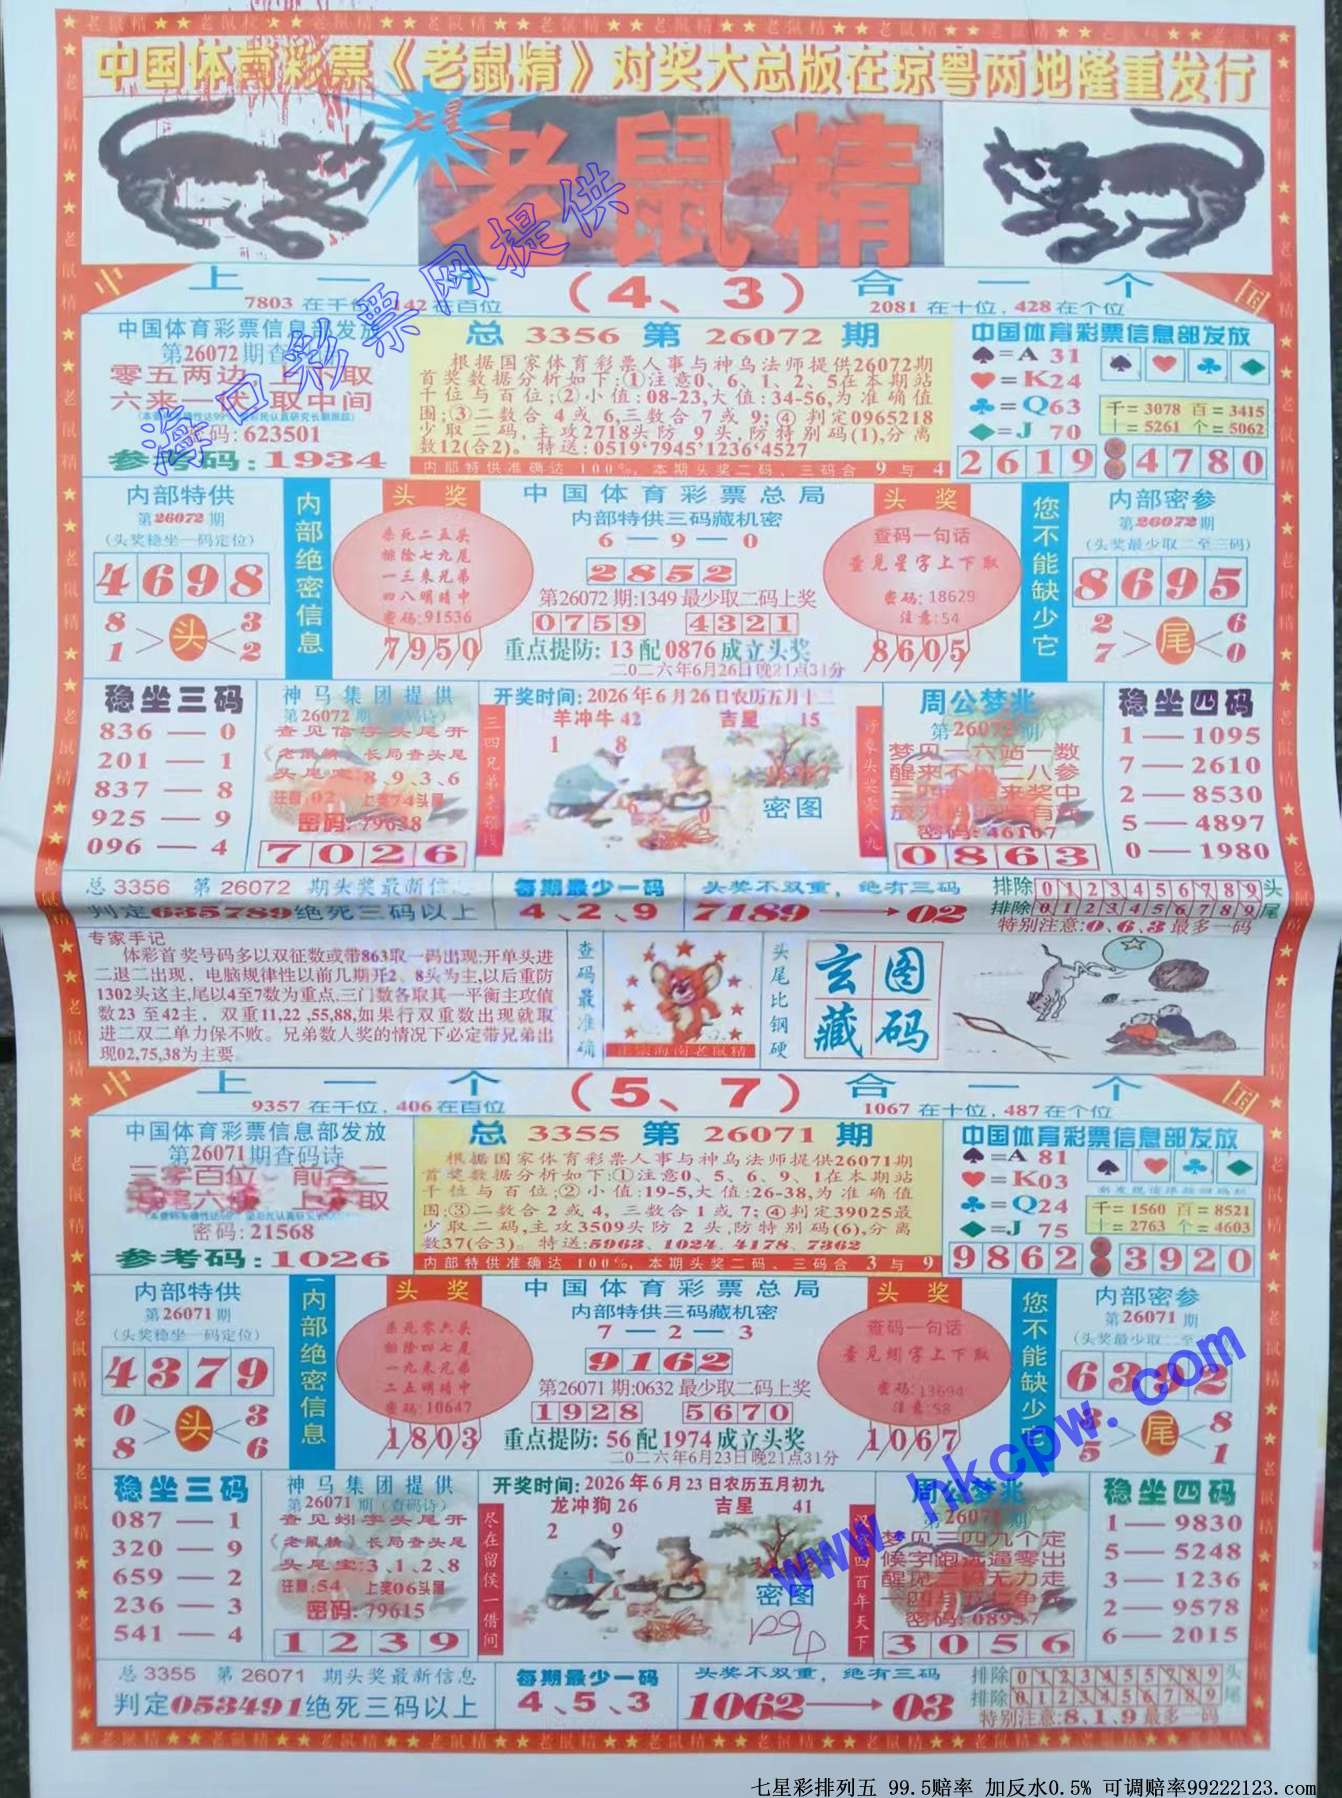 中国体育彩票《老鼠精》对奖大总版在琼粤两地隆重发行
七星
老鼠精
海口彩票网提供
中 上一个 (4、3) 合一个 国
7803在千位,142在百位
2081在十位,428在个位
中国体育彩票信息部发放
零五两边 上下取
六来一伏 取中间
密码:623501
参考码:1934
总3356第26072期
根据国家体育彩票人事与神乌法师提供26072期
首奖数据分析如下:①注意0、6、1、2、5在本期站
千位与百位;②小值:08-23,大值:34-56,为准确值
围;③二数合4或6,三数合7或9;④判定0965218
少取二码,主攻2718头防9头,防特别码(1),分离
数12(合2)。特送:0519*7945*1236*4527
内部特供准确达100%,本期头奖二码、三码合9与4
中国体育彩票信息部发放
♠=A 31
♥=K24
♣=Q63
♦=J 70
千=3078 百=3415
十=5261 个=5062
2619 4780
内部特供
第26072期
(头奖稳坐一码定位)
4698
8 > 头 < 3
1 2
内部绝密信息
头奖
杀死二五头
排除七九尾
一三来兄弟
四八明猜中
密码:91536
7950
中国体育彩票总局
内部特供三码藏机密
6—9—0
2852
第26072期:1349最少取二码上奖
0759 4321
重点提防:13配0876成立头奖
二〇二六年6月26日晚21点31分
头奖
查码一句话
查见星字上下取
密码:18629
注意:54
8605
您不能缺少它
内部密参
第26072期
(头奖最少取二至三码)
8695
2 > 尾 < 6
7 0
稳坐三码
836—0
201—1
837—8
925—9
096—4
神马集团提供
第26072期(查码诗)
查见信字头尾开
(老鼠精)长局查头尾
头尾宝:8、9、3、6
注意:02 上奖74头尾
密码:79638
7026
开奖时间:2026年6月26日农历五月十二
羊冲牛42 吉星 15
1 8
密图
周公梦兆
第26072期
梦见一六站一数
密码:46167
0863
稳坐四码
1—1095
7—2610
2—8530
5—4897
0—1980
总3356 第26072期头奖最新信息
判定635789绝死三码以上
每期最少一码
4、2、9
头奖不双重,绝有三码
7189→02
排除0123456789头
排除0123456789尾
特别注意:0、6、3最多一码
专家手记
体彩首奖号码多以双征数或带863取一码出现;开单头进
二退二出现,电脑规律性以前几期开2、8头为主,以后重防
1302头这主,尾以4至7数为重点,三门数各取其一平衡主攻值
数23至42主,双重11,22,55,88,如果行双重数出现就取
进二双二单力保不败。兄弟数人奖的情况下必定带兄弟出
现02,75,38为主要。
查码最准确
正宗海南老鼠精
头尾比钢硬
玄图
藏码
中 上一个 (5、7) 合一个 国
9357在千位,406在百位
1067在十位,487在个位
中国体育彩票信息部发放
第26071期查码诗
三零百位 前合二
密码:21568
参考码:1026
总3355第26071期
根据国家体育彩票人事与神乌法师提供26071期
首奖数据分析如下:①注意0、5、6、9、1在本期站
千位与百位;②小值:19-5,大值:26-38,为准确值
围;③二数合2或4,三数合1或7;④判定39025最
少取二码,主攻3509头防2头,防特别码(6),分离
数37(合3)。特送:5963、1024、4178、7362
内部特供准确达100%,本期头奖二码、三码合3与9
中国体育彩票信息部发放
♠=A 81
♥=K03
♣=Q24
♦=J 75
千=1560 百=8521
十=2763 个=4603
9862 3920
内部特供
第26071期
(头奖稳坐一码定位)
4379
0 > 头 < 3
8 6
内部绝密信息
头奖
杀死零六头
排除四七尾
一九来兄弟
二五明猜中
密码:10647
1803
中国体育彩票总局
内部特供三码藏机密
7—2—3
9162
第26071期:0632最少取二码上奖
1928 5670
重点提防:56配1974成立头奖
二〇二六年6月23日晚21点31分
头奖
查码一句话
查见蚓字上下取
密码:13694
注意:58
1067
您不能缺少它
内部密参
第26071期
尾 < 8
5 1
稳坐三码
087—1
320—9
659—2
236—3
541—4
神马集团提供
第26071期(查码诗)
查见蚓字头尾开
(老鼠精)长局查头尾
头尾宝:3、1、2、8
注意:54 上奖06头尾
密码:79615
1239
尽在留侯一借间
开奖时间:2026年6月23日农历五月初九
龙冲狗26 吉星 41
2 9
密图
汉家四百年天下
周公梦兆
第26071期
梦见三四九个定
密码:08937
3056
稳坐四码
1—9830
5—5248
3—1236
2—9578
6—2015
总3355 第26071期头奖最新信息
判定053491绝死三码以上
每期最少一码
4、5、3
头奖不双重,绝有三码
1062→03
排除0123456789头
排除0123456789尾
特别注意:8、1、9最多一码
www.hkcpw.com
七星彩排列五 99.5赔率 加反水0.5% 可调赔率99222123.com